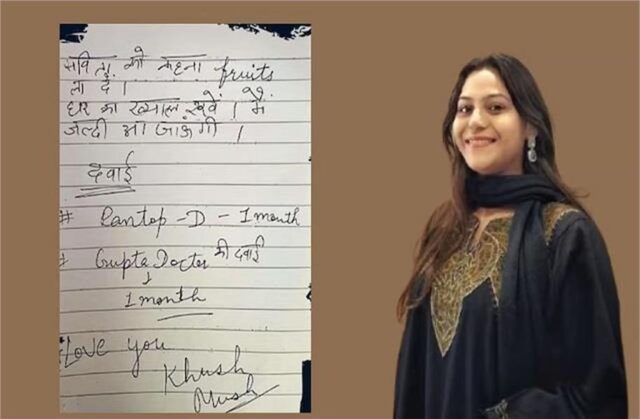 सविता को कहना fruits
ला दे ।
घर का ख्याल रखें । मैं
जल्दी आ जाऊंगी ।
दवाई
# Pantop - D - 1 month
# Gupta Doctor की दवाई
↓
1 month
Love you
Khush